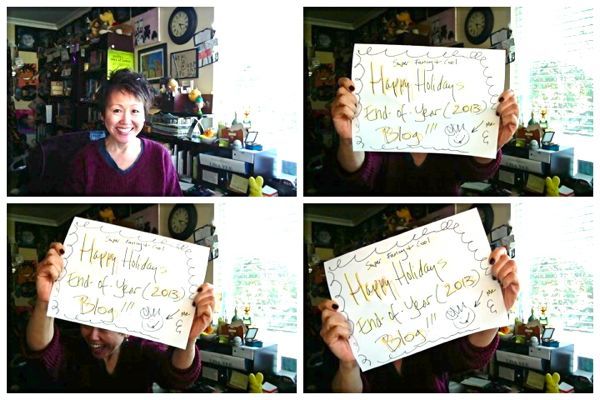 Super Fancy + Cool
Happy Holidays
End of Year (2013)
Blog!!!
me
Super Fancy + Cool
Happy Holidays
End of Year (2013)
Blog!!!
me
Super Fancy + Cool
Happy Holidays
End of Year (2013)
Blog!!!
me